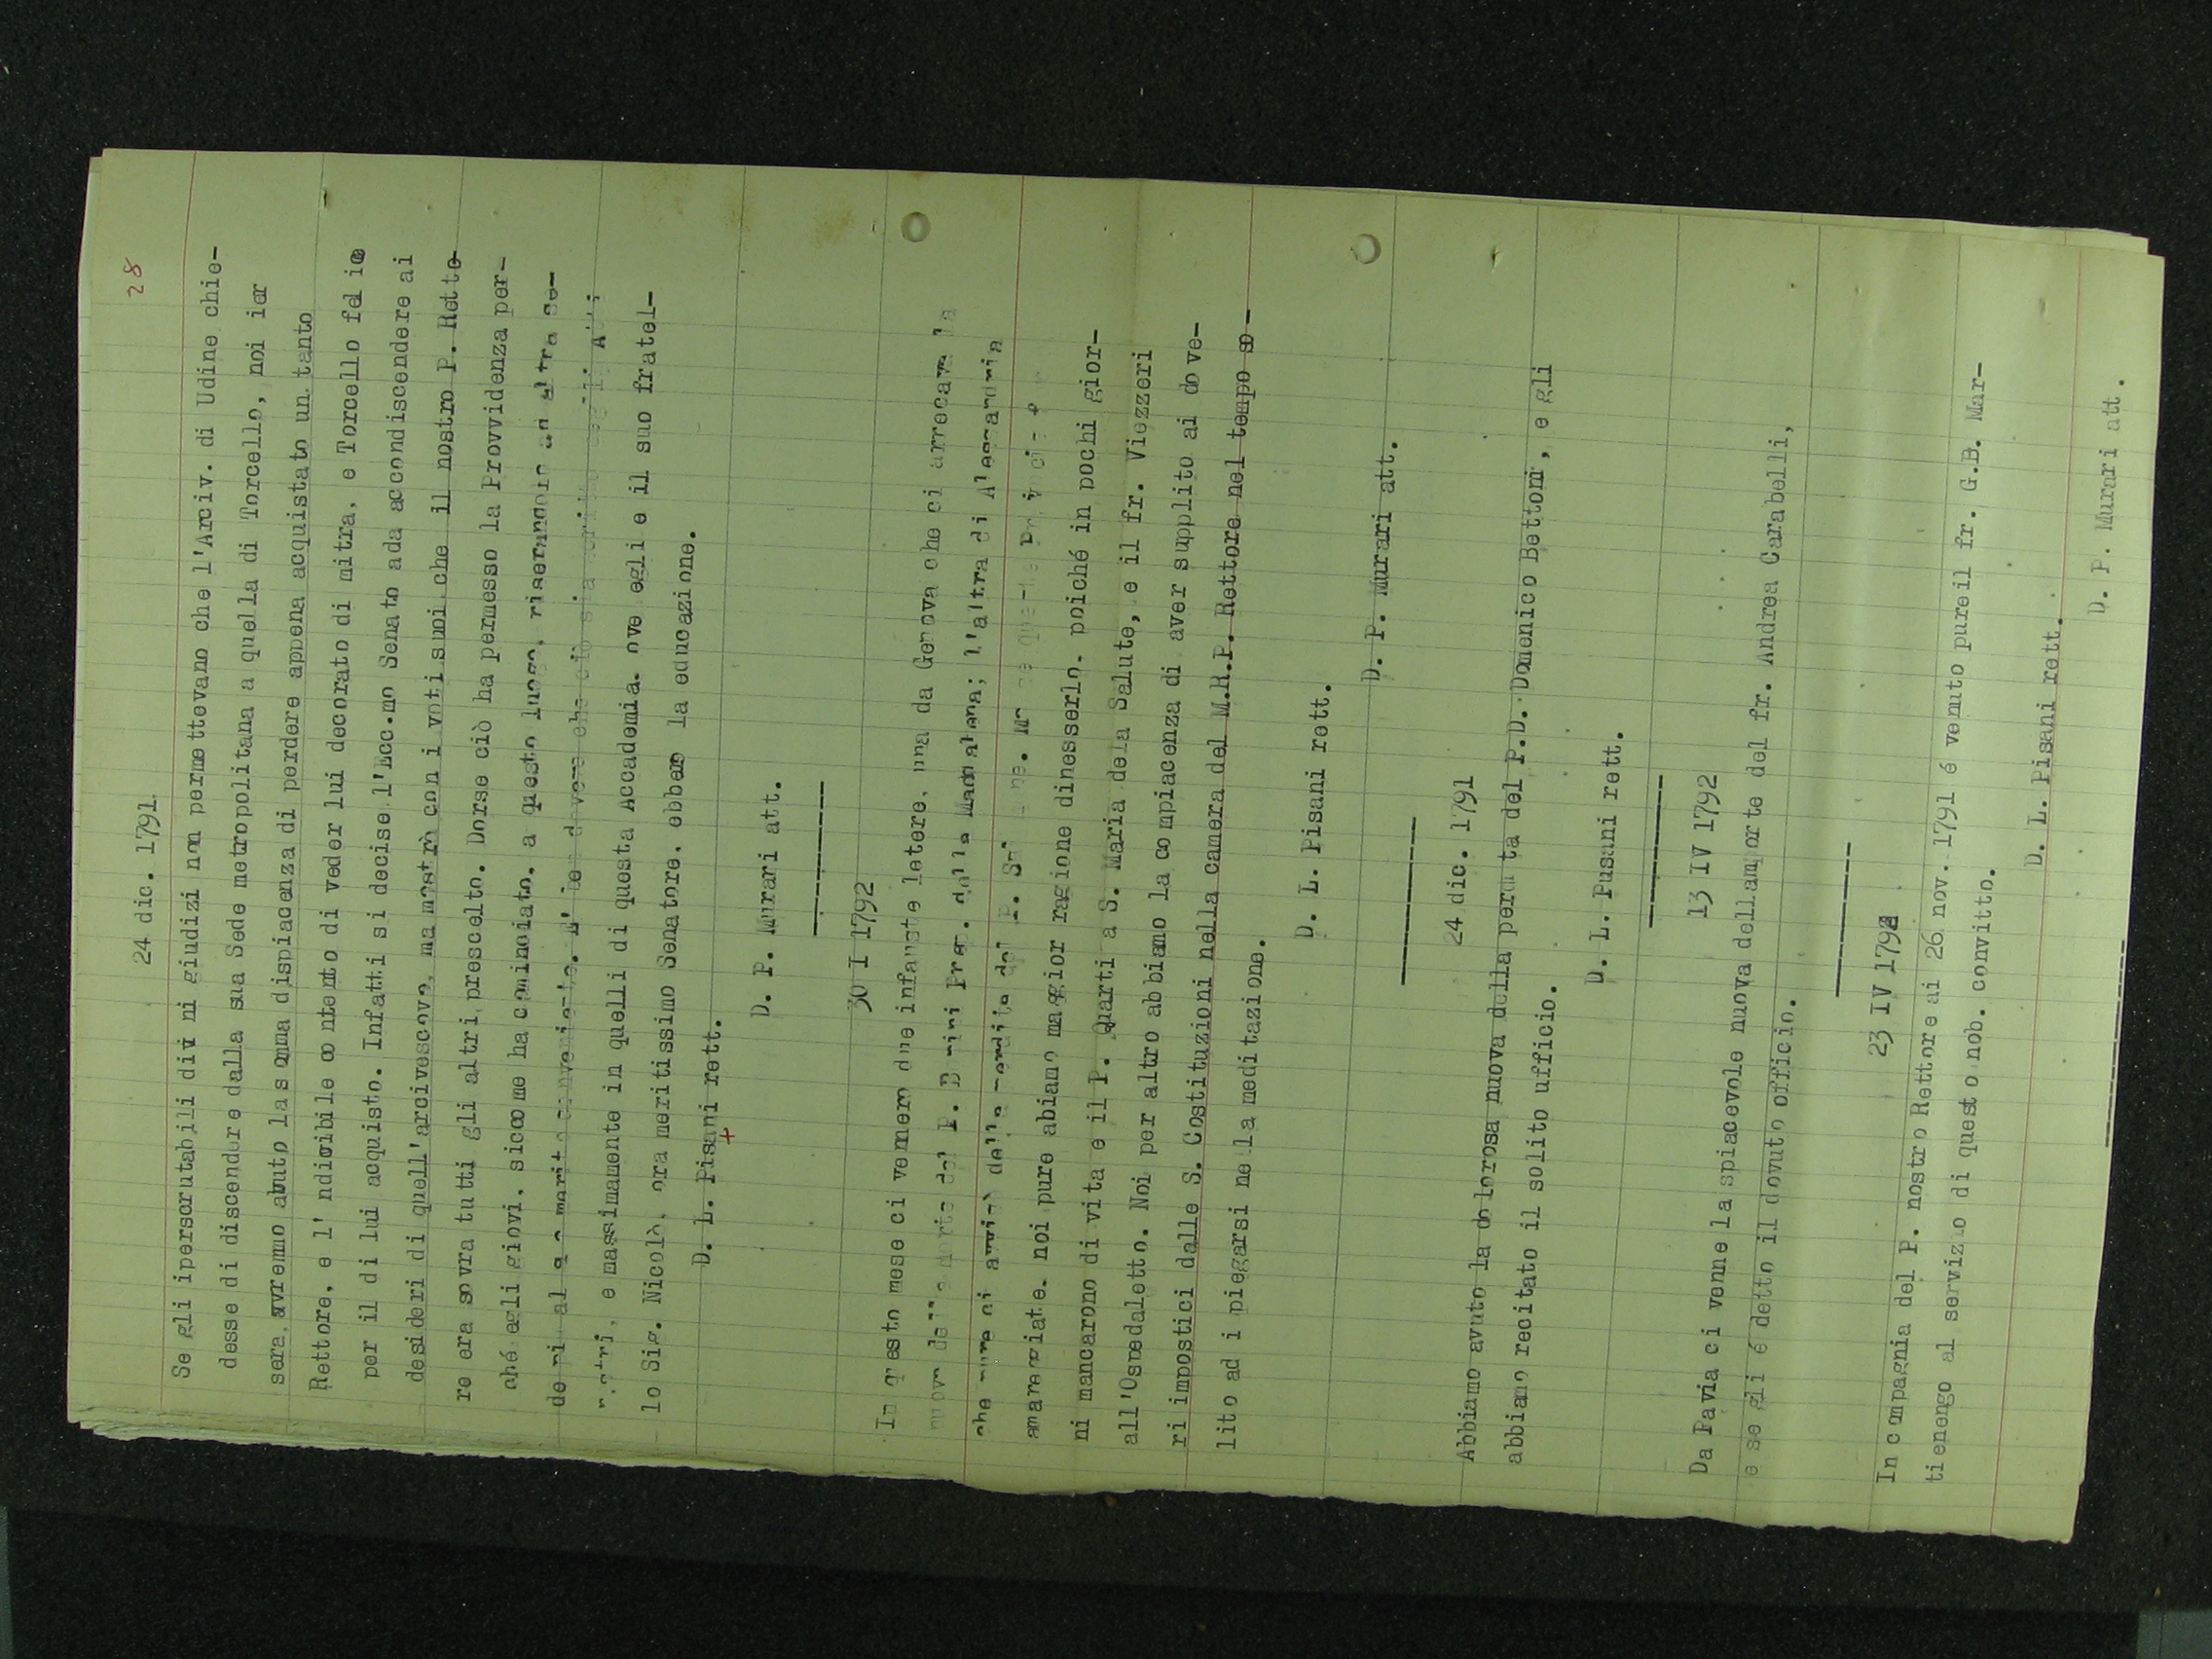 28
24 dic. 1791
Se gli iperscrutabili divini giudizi non permettevano che l'Arciv. di Udine chie-
desse di discendere dalla sua Sede metropolitana a quella di Torcello, noi ier
sera avremmo avuto la somma dispiacenza di perdere appena acquistato un tanto
Rettore, e l' ndicibile contento di veder lui decorato di mitra, e Torcello felice
per il di lui acquisto. Infatti si decise l'Ecc.mo Senato ada accondiscendere ai
desideri di quell'arcivescovo, ma mostrò con i voti suoi che il nostro P. Retto-
re era sovra tutti gli altri prescelto. Dorse ciò ha permesso la Provvidenza per-
ché egli giovi, siccome ha cominciato, a questo luogo, riserandolo ad altra se-
de più al suo merito conveniente. E' ben dovere che ciò sia scritto negli Atti
nostri, e massimamente in quelli di questa Accademia, ove egli e il suo fratel-
lo Sig. Nicolò, ora meritissimo Senatore, ebbero la educazione.
D. L. Pisani rett.
D. P. Murari att.
30 I 1792
In questo mese ci vennero due infauste letere, una da Genova che ci arrecava la
nuova della morte del P. Prep. della Maddalena; l'altra di Alessandria
che pure ci avvisò della perdita del P.
amareggiate, noi pure abiamo maggior ragione dinesserlo, poiché in pochi gior-
ni mancarono di vita e il P. Quarti a S. Maria dela Salute, e il fr. Viezzeri
all'Ospedaletto. Noi per altro abbiamo la compiacenza di aver supplito ai dove-
ri impostici dalle S. Costituzioni nella camera del M.R.P. Rettore nel tempo so-
lito ad i piegarsi nella meditazione.
D. L. Pisani rett.
D. P. Murari att.
24 dic. 1791
Abbiamo avuto la dolorosa nuova della perdita del P.D. Domenico Bettoni, e gli
abbiamo recitato il solito ufficio.
D. L. Pusani rett.
13 IV 1792
Da Pavia ci venne la spiacevole nuova dellamporte del fr. Andrea Carabelli,
e se gli é detto il dovuto officio.
23 IV 1792
In compagnia del P. nostro Rettore ai 26 nov. 1791 é venuto pure il fr. G.B. Mar-
tienengo al servizio di questo nob. convitto.
D. L. Pisani rett.
D. P. Murari att.